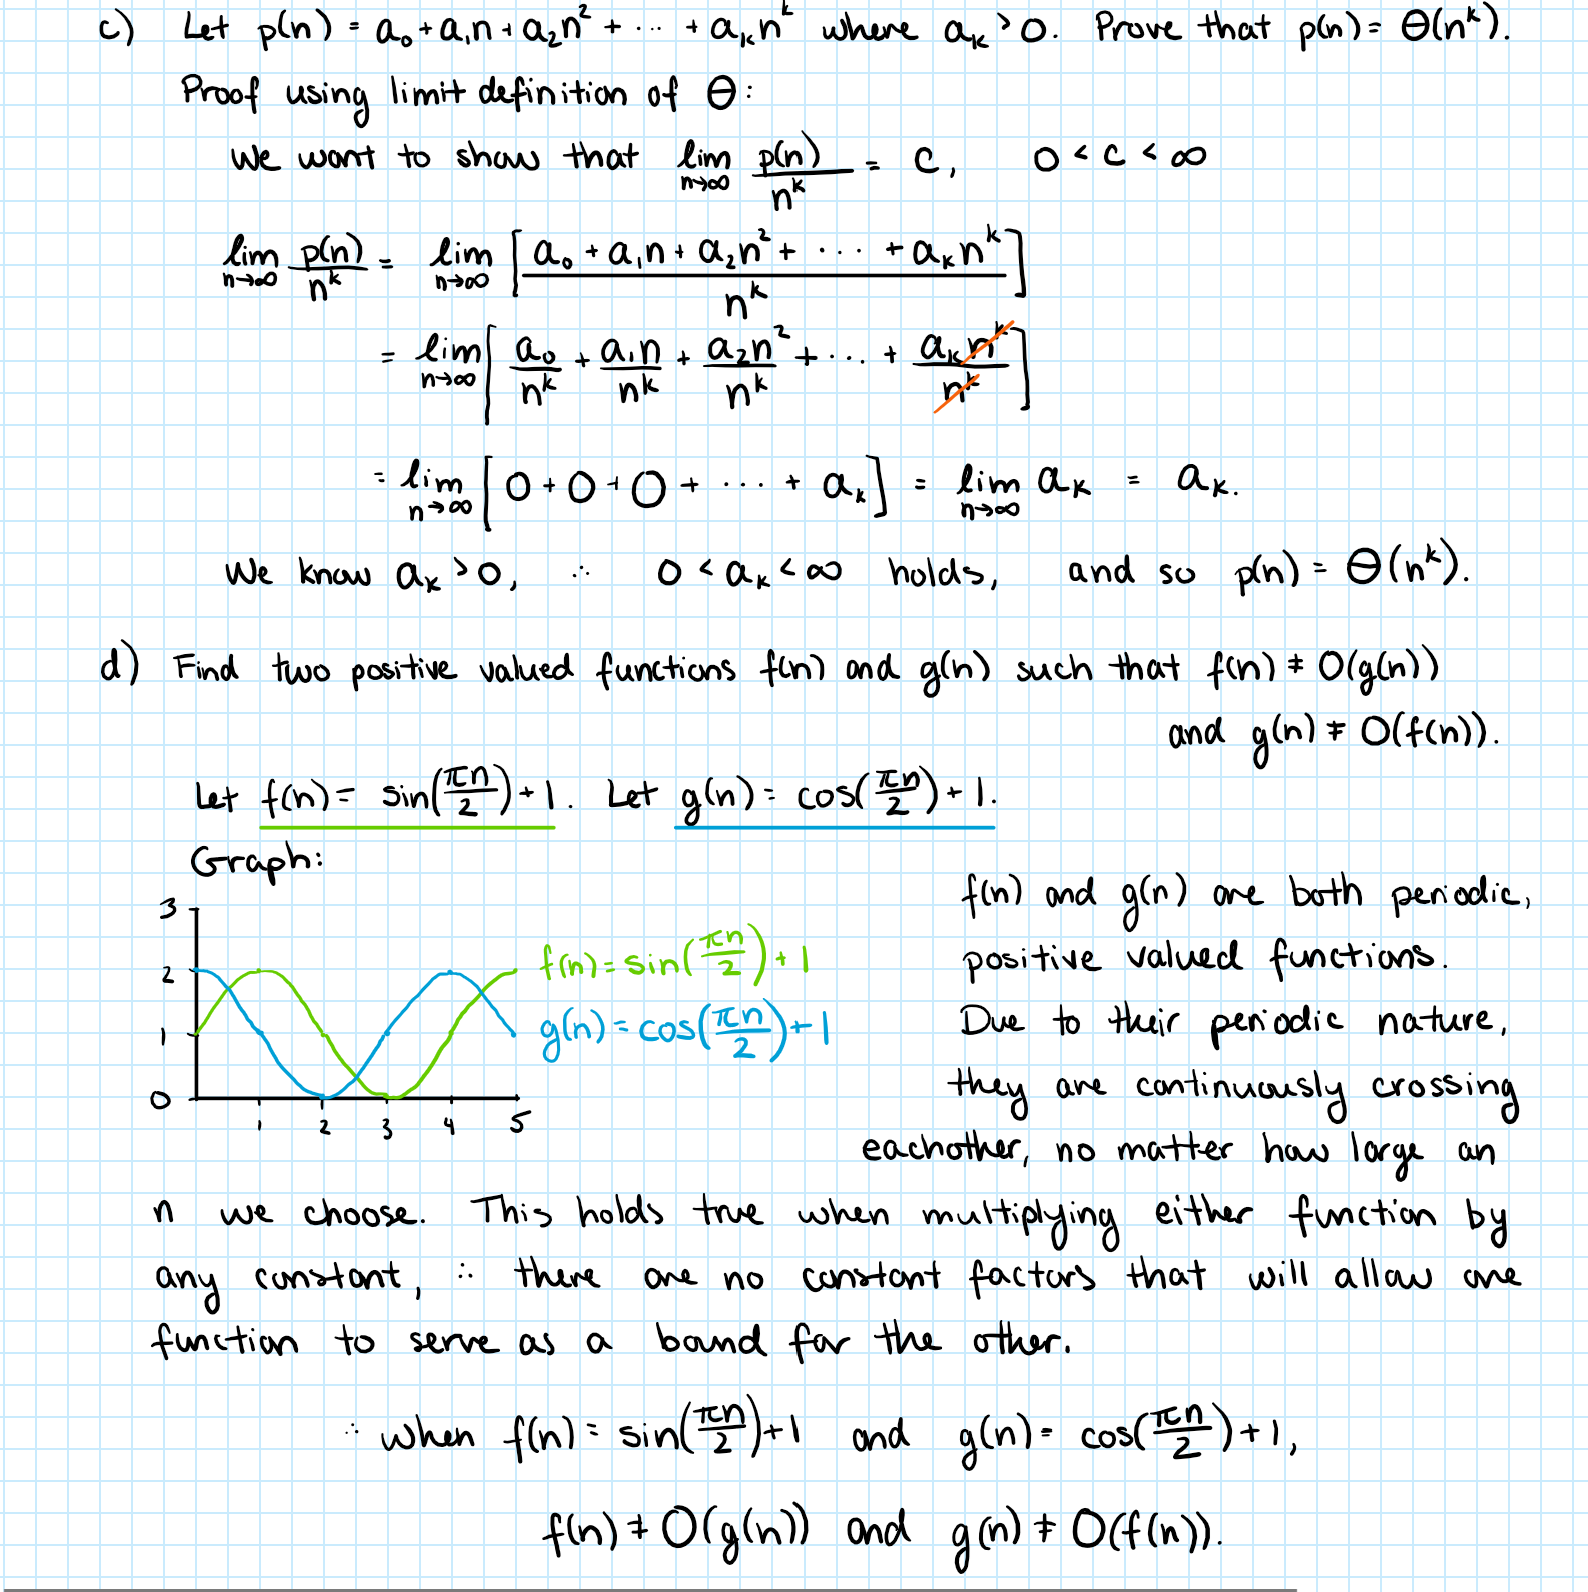 c) Let p(n) = a₀ + a₁n + a₂n² + ... + aₖnᵏ where aₖ > 0. Prove that p(n) = Θ(nᵏ).
Proof using limit definition of Θ:
We want to show that lim n→∞ p(n)/nᵏ = C, 0 < C < ∞
lim n→∞ p(n)/nᵏ = lim n→∞ [(a₀ + a₁n + a₂n² + ... + aₖnᵏ)/nᵏ]
= lim n→∞ [a₀/nᵏ + a₁n/nᵏ + a₂n²/nᵏ + ... + aₖnᵏ/nᵏ]
= lim n→∞ [0 + 0 + 0 + ... + aₖ] = lim n→∞ aₖ = aₖ.
We know aₖ > 0, ∴ 0 < aₖ < ∞ holds, and so p(n) = Θ(nᵏ).
d) Find two positive valued functions f(n) and g(n) such that f(n) ≠ O(g(n))
and g(n) ≠ O(f(n)).
Let f(n) = sin(πn/2) + 1. Let g(n) = cos(πn/2) + 1.
Graph:
3
2
1
0
1 2 3 4 5
f(n) = sin(πn/2) + 1
g(n) = cos(πn/2) + 1
f(n) and g(n) are both periodic,
positive valued functions.
Due to their periodic nature,
they are continuously crossing
eachother, no matter how large an
n we choose. This holds true when multiplying either function by
any constant, ∴ there are no constant factors that will allow one
function to serve as a bound for the other.
∴ when f(n) = sin(πn/2) + 1 and g(n) = cos(πn/2) + 1,
f(n) ≠ O(g(n)) and g(n) ≠ O(f(n)).